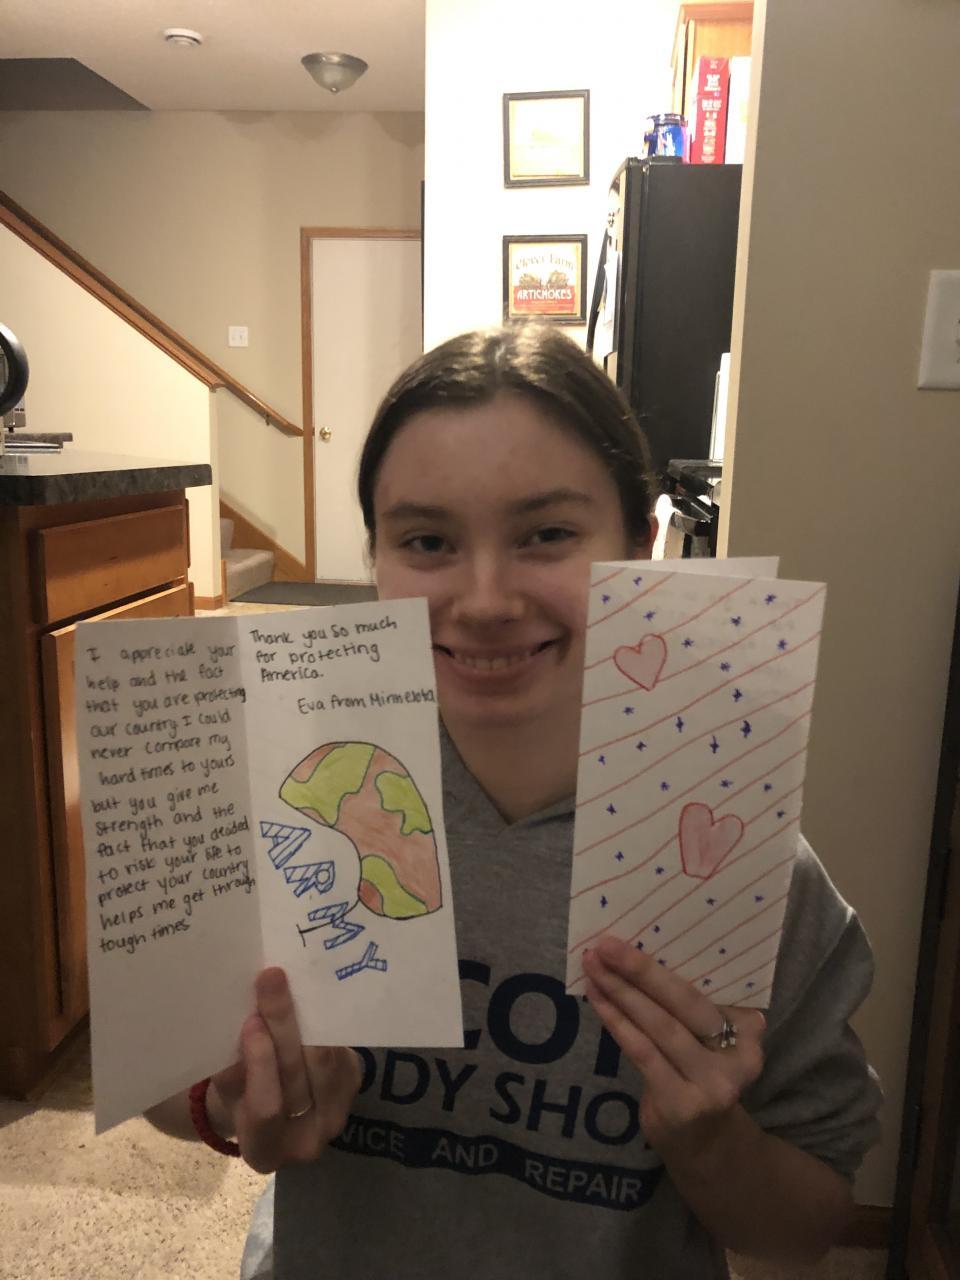 Clover Farm
ARTICHOKES
I appreciate your
help and the fact
that you are protecting
our country I could
never compare my
hard times to yours
but you give me
strength and the
fact that you decided
to risk your life to
protect your country
helps me get through
tough times
Thank you so much
for protecting
America.
Eva from Minnesota
ARMY
COT
ODY SHO
VICE AND REPAIR